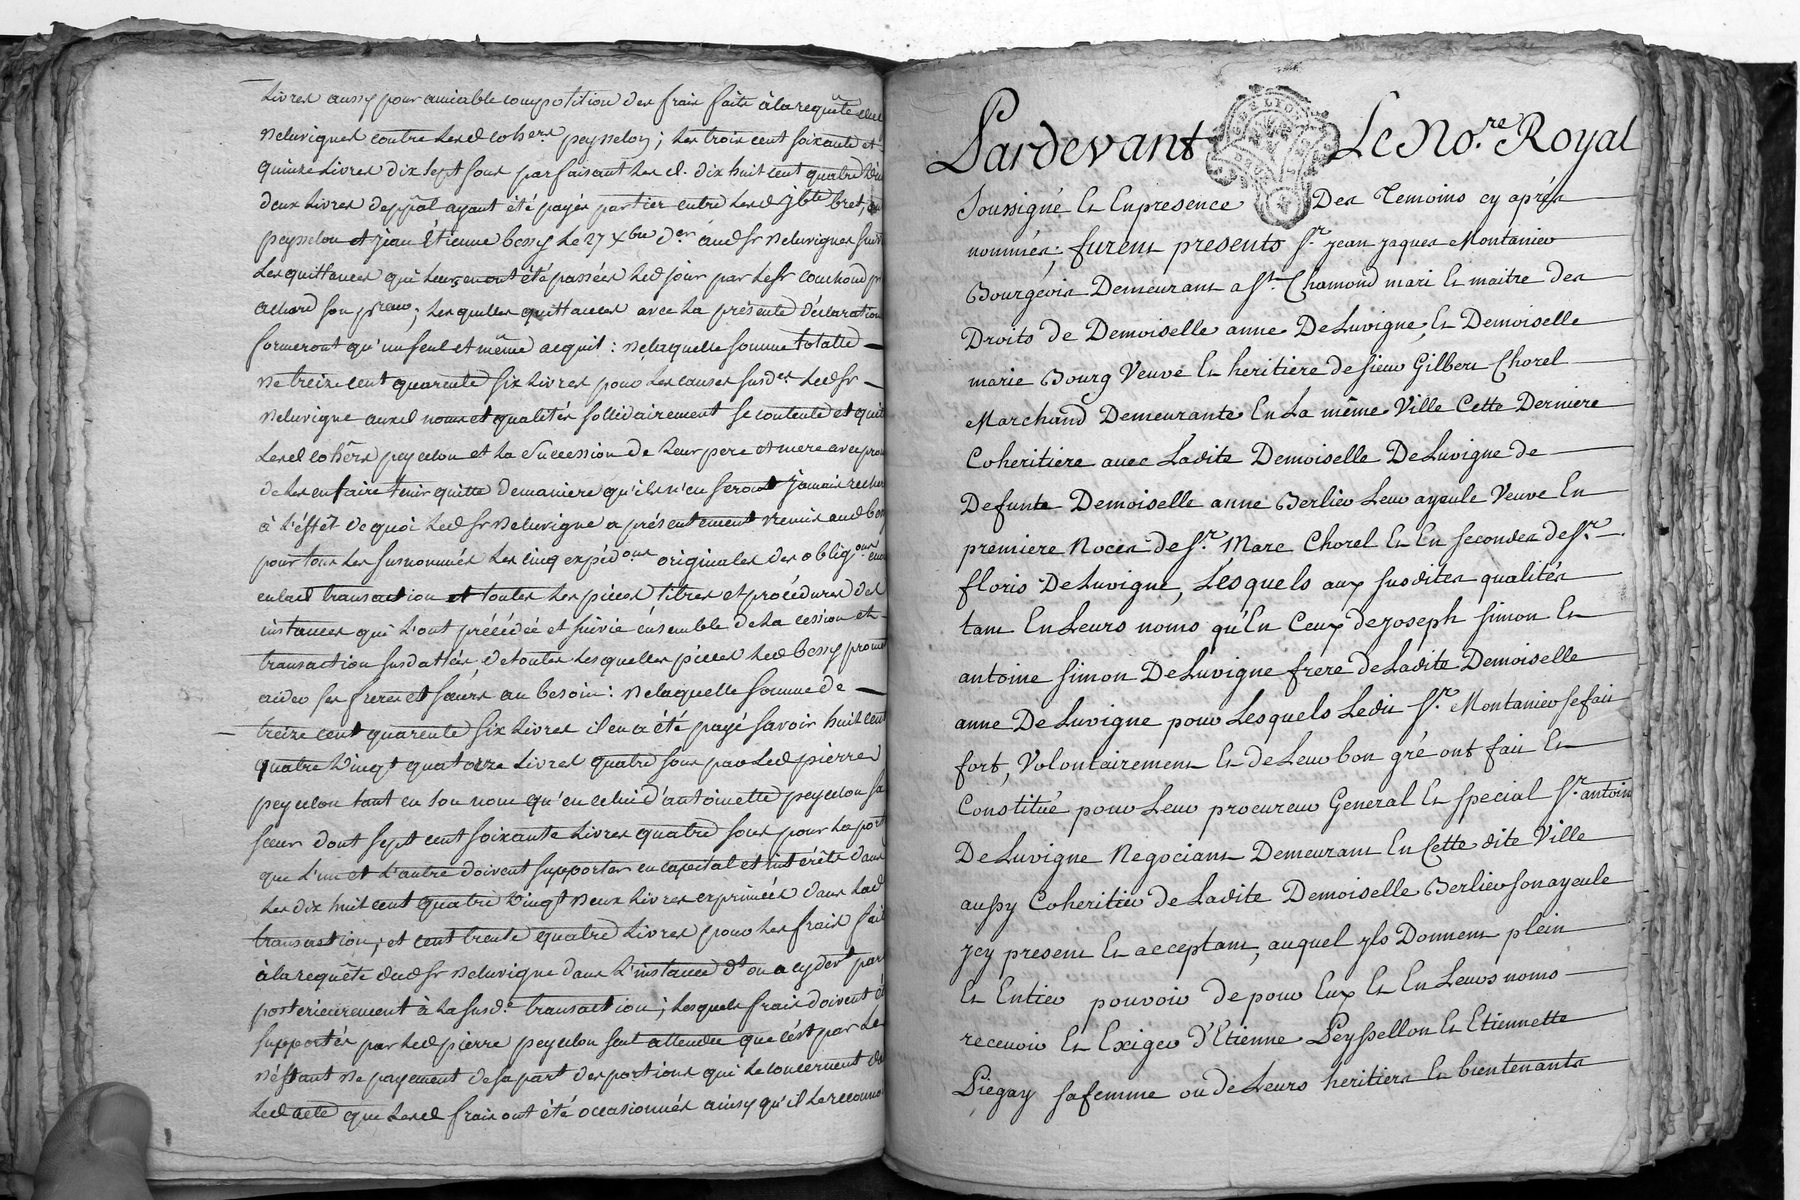 Livres aussy pour amiable composition des frais faits à la requête dud
Deluvigne contre lesd cohers peysselon; les trois cent soixante et
quinze livres dix sept sous parfaisant les d. dix huit cent quatre vingt
deux livres de ppal ayant été payés par tier entre lesd bret,
peysselon et jean Etienne bessy le 27 xbre der aud sr Deluvigne
les quittances qui leurs en ont été passées led jour par le sr couchoud
allard son preur; lesquelles quittances avec la présente déclaration
formeront qu'un seul et même acquit: de laquelle somme totalle
de treize cent quarente six livres pour les causes susdes led sr
Deluvigne auxd noms et qualités sollidairement se contente et quitte
lesd cohers peyselon et la succession de leur pere et mere avec
de les en faire tenir quitte de maniere qu'ils n'en seront jamais
à l'éffèt de quoi led sr Deluvigne a présentement remis aud bessy
pour tous les susnommés les cinq expédons originales des obligons
en lad transaction et toutes les pièces titres et procédures des
instances qui l'ont précédée et suivie énsemble de la cession et
transaction susdattées, de toutes lesquelles pièces led bessy promet
aider ses freres et sœurs au besoin: de laquelle somme de
treize cent quarente six livres il en a été payé savoir huit cent
quatre vingt quatorze livres quatre sous par led pierre
peyselon tant en son nom qu'en celui d'antoinette peyselon sa
sœur dont sept cent soixante livres quatre sous pour la part
que l'un et l'autre doivent supporter en capital et intérêts dans
les dix huit cent quatre vingt deux livres exprimées dans lad
transaction; et cent trente quatre livres pour les frais faits
à la requête dud sr Deluvigne dans l'instance dt on a cydevt parlé
postérieurement à la susde transaction; lesquels frais doivent
supportés par led pierre peyselon seul attendu que c'est par le
déffaut de payement de sa part des portions qui le concernent
led acte que lesd frais ont été occasionnés ainsy qu'il le reconnoit
Pardevant Le No.re Royal
Soussigné Et En presence Des Temoins cy aprés
nommés; furent presents Sr. jean jaques Montanier
Bourgeois Demeurant a St Chamond mari Et maitre des
Droits de Demoiselle anne DeLuvigne, Et Demoiselle
marie Bourg Veuve Et heritiére de sieur Gilbert Chorel
Marchand Demeurante En La même Ville Cette Derniere
Coheritiere avec Ladite Demoiselle DeLuvigne de
Defunte Demoiselle anne Berlier Leur ayeule Veuve En
premiere Noces de Sr. Marc Chorel Et En secondes de Sr.
floris DeLuvigne, Lesquels aux susdites qualités
tant En Leurs noms qu'En Ceux de joseph simon Et
antoine simon DeLuvigne frere de Ladite Demoiselle
anne DeLuvigne pour Lesquels Ledit Sr. Montanier se fait
fort, Volontairement Et de Leur bon gré ont fait Et
Constitué pour Leur procureur General Et special Sr. antoine
DeLuvigne Negociant Demeurant En Cette dite Ville
aussy Coheritier de Ladite Demoiselle Berlier son ayeule
jcy present Et acceptant, auquel jls Donnent plein
Et Entier pouvoir de pour Eux Et En Leurs noms
recevoir Et Exiger d'Etienne Peyssellon Et Etiennette
Piegay sa femme ou de Leurs heritiers Et bientenants